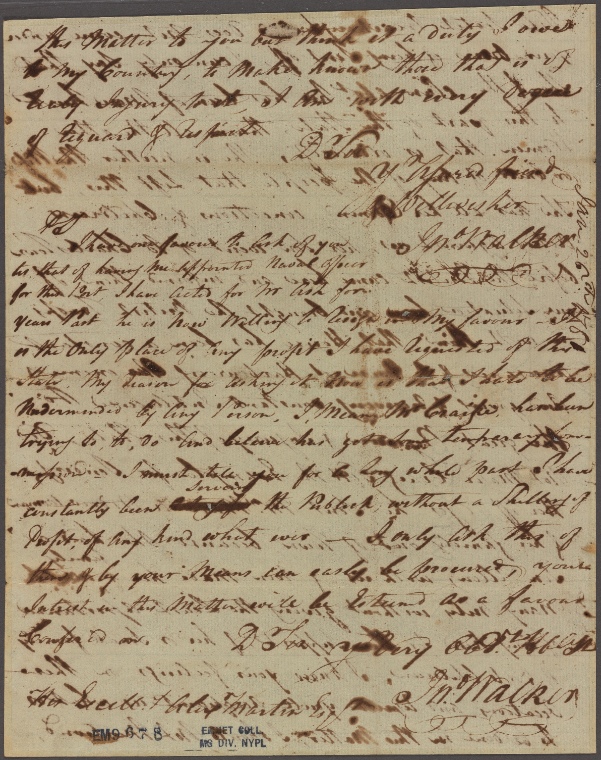 this Matter to you but think it a duty I owe
to My Country, to Make known those that is
Injury to it, I am with every Degree
of reguard & respect
Dr Sir
Yr Assured friend
& Wellwisher
Jno Walker
PS
I have one favour to Ask of you
is that of having me Appointed Naval Officer
for this Port I have acted for Mr for
years Past he is Now Willing to my favour
is the Only Place of Any profit I have requested of this
State My reason for asking it Now is that I hate to be
Undermined by Any Person, I Mean Mr Craike has been
trying to do And beleive has got temperary
I must tell you for a long while past I have
Serving
constantly been the Publick without a Shilling of
Profit, of Any kind what ever — I only ask this of
if by your Means can easily be procured, your
Interest in this Matter will be Esteemed as a favour
Confered on. Dr Sir Your very Obdt Hble St
Jno Walker
His Excell. Alexr Martin Esqr
EM9678
EMMET COLL.
MS DIV. NYPL